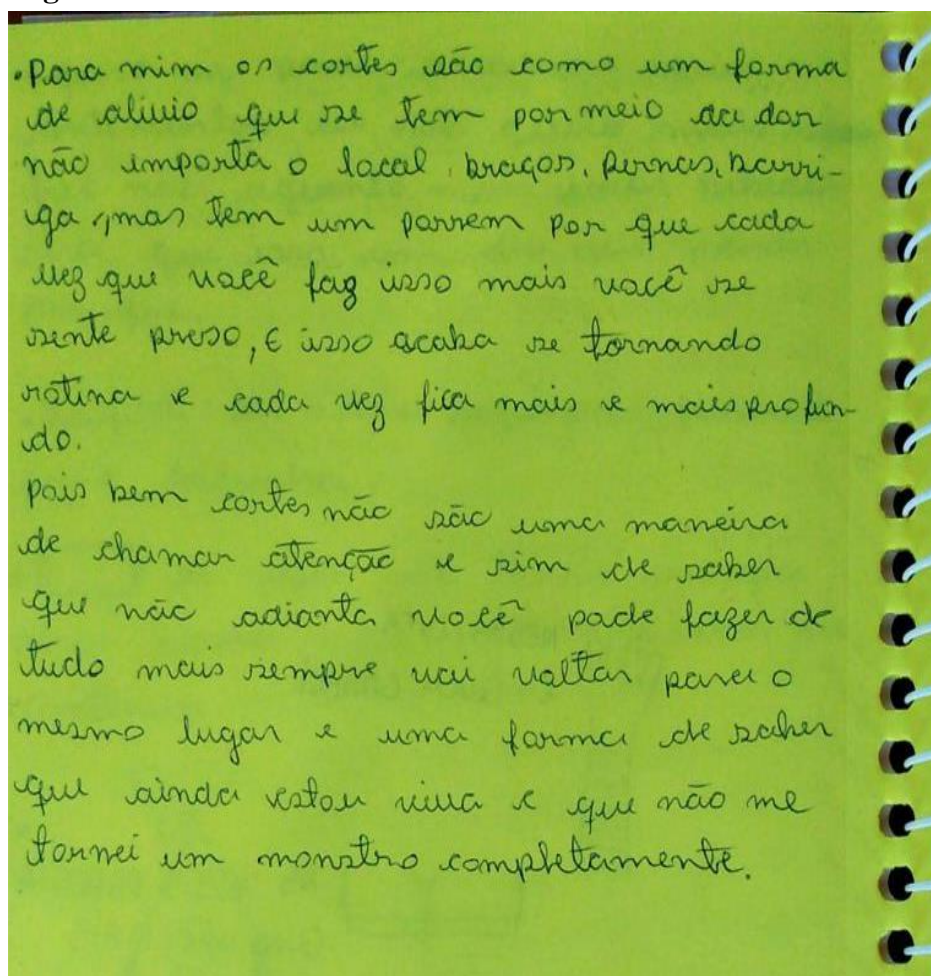 g
• Para mim os cortes são como um forma
de alivio que se tem por meio da dor
não importa o local, braços, pernas, barri-
ga, mas tem um porrem por que cada
vez que você faz isso mais você se
sente preso, E isso acaba se tornando
rotina e cada vez fica mais e mais profun-
do.
pois bem cortes não são uma maneira
de chamar atenção e sim de saber
que não adianta você pode fazer de
tudo mais sempre vai voltar para o
mesmo lugar e uma forma de saber
que ainda estou viva e que não me
tornei um monstro completamente.